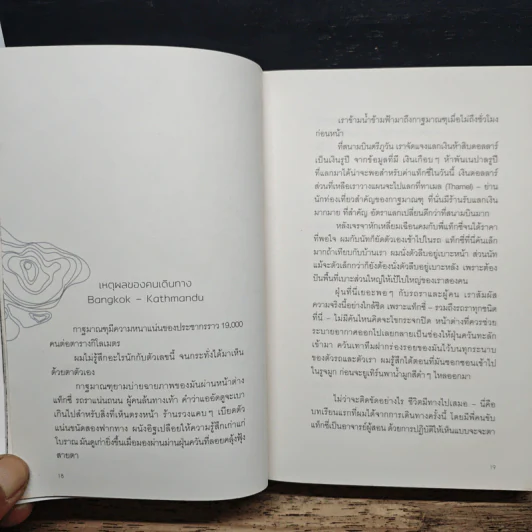 เหตุผลของคนเดินทาง
Bangkok – Kathmandu
กาฐมาณฑุมีความหนาแน่นของประชากรราว 19,000
คนต่อตารางกิโลเมตร
ผมไม่รู้สึกอะไรนักกับตัวเลขนี้ จนกระทั่งได้มาเห็น
ด้วยตาตัวเอง
กาฐมาณฑุยามบ่ายฉายภาพของมันผ่านหน้าต่าง
แท็กซี่ รถราแน่นถนน ผู้คนล้นทางเท้า คำว่าแออัดดูจะเบา
เกินไปสำหรับสิ่งที่เห็นตรงหน้า ร้านรวงแคบๆ เบียดตัว
แน่นชนิดสองฟากทาง ผนังอิฐเปลือยให้ความรู้สึกเก่าแก่
โบราณ มันดูเก่ายิ่งขึ้นเมื่อมองผ่านม่านฝุ่นควันที่ลอยคลุ้งฟุ้ง
สายตา
18
เราข้ามน้ำข้ามฟ้ามาถึงกาฐมาณฑุเมื่อไม่ถึงชั่วโมง
ก่อนหน้า
ที่สนามบินตรีภูวัน เราจัดแจงแลกเงินห้าสิบดอลลาร์
เป็นเงินรูปี จากข้อมูลที่มี เงินเกือบๆ ห้าพันเนปาลรูปี
ที่แลกมาได้น่าจะพอสำหรับค่าแท็กซี่ในวันนี้ เงินดอลลาร์
ส่วนที่เหลือเราวางแผนจะไปแลกที่ทาเมล (Thamel) – ย่าน
นักท่องเที่ยวสำคัญของกาฐมาณฑุ ที่นั่นมีร้านรับแลกเงิน
มากมาย ที่สำคัญ อัตราแลกเปลี่ยนดีกว่าที่สนามบินมาก
หลังเจรจาหักเหลี่ยมเฉือนคมกับพี่แท็กซี่จนได้ราคา
ที่พอใจ ผมกับนัทก็ยัดตัวเองเข้าไปในรถ แท็กซี่ที่นี่คันเล็ก
มากถ้าเทียบกับบ้านเรา ผมนั่งตัวลีบอยู่เบาะหน้า ส่วนนัท
แม้จะตัวเล็กกว่าก็ยังต้องนั่งตัวลีบอยู่เบาะหลัง เพราะต้อง
ปันพื้นที่เบาะส่วนใหญ่ให้เป้ใบใหญ่ของเราสองคน
ฝุ่นที่นี่เยอะพอๆ กับรถราและผู้คน เราสัมผัส
ความจริงนี้อย่างใกล้ชิด เพราะแท็กซี่ – รวมถึงรถราทุกชนิด
ที่นี่ – ไม่มีคันไหนคิดจะไขกระจกปิด หน้าต่างที่ควรช่วย
ระบายอากาศออกไปเลยกลายเป็นช่องให้ฝุ่นควันทะลัก
เข้ามา ควันเทาที่มาฝากร่องรอยของมันไว้บนทุกระนาบ
ของตัวรถและตัวเรา ผมรู้สึกได้ตอนที่มันชอกชอนเข้าไป
ในรูจมูก ก่อนจะยูเทิร์นพาน้ำมูกสีดำๆ ไหลออกมา
ไม่ว่าจะติดขัดอย่างไร ชีวิตมีทางไปเสมอ – นี่คือ
บทเรียนแรกที่ผมได้จากการเดินทางครั้งนี้ โดยมีพี่คนขับ
แท็กซี่เป็นอาจารย์ผู้สอน ด้วยการปฏิบัติให้เห็นแบบจะจะตา
19